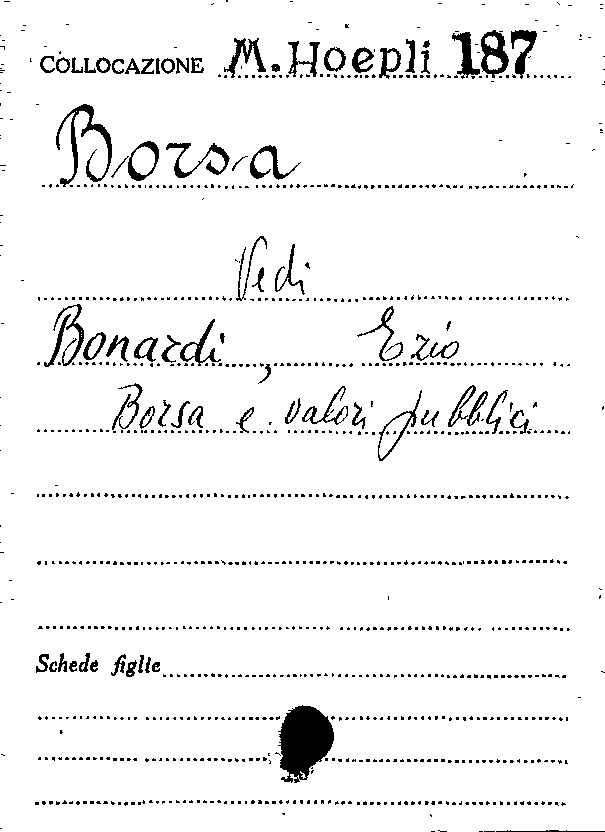 COLLOCAZIONE M. Hoepli 187
Borsa
Vedi
Bonardi, Ezio
Borsa e valori pubblici
Schede figlie